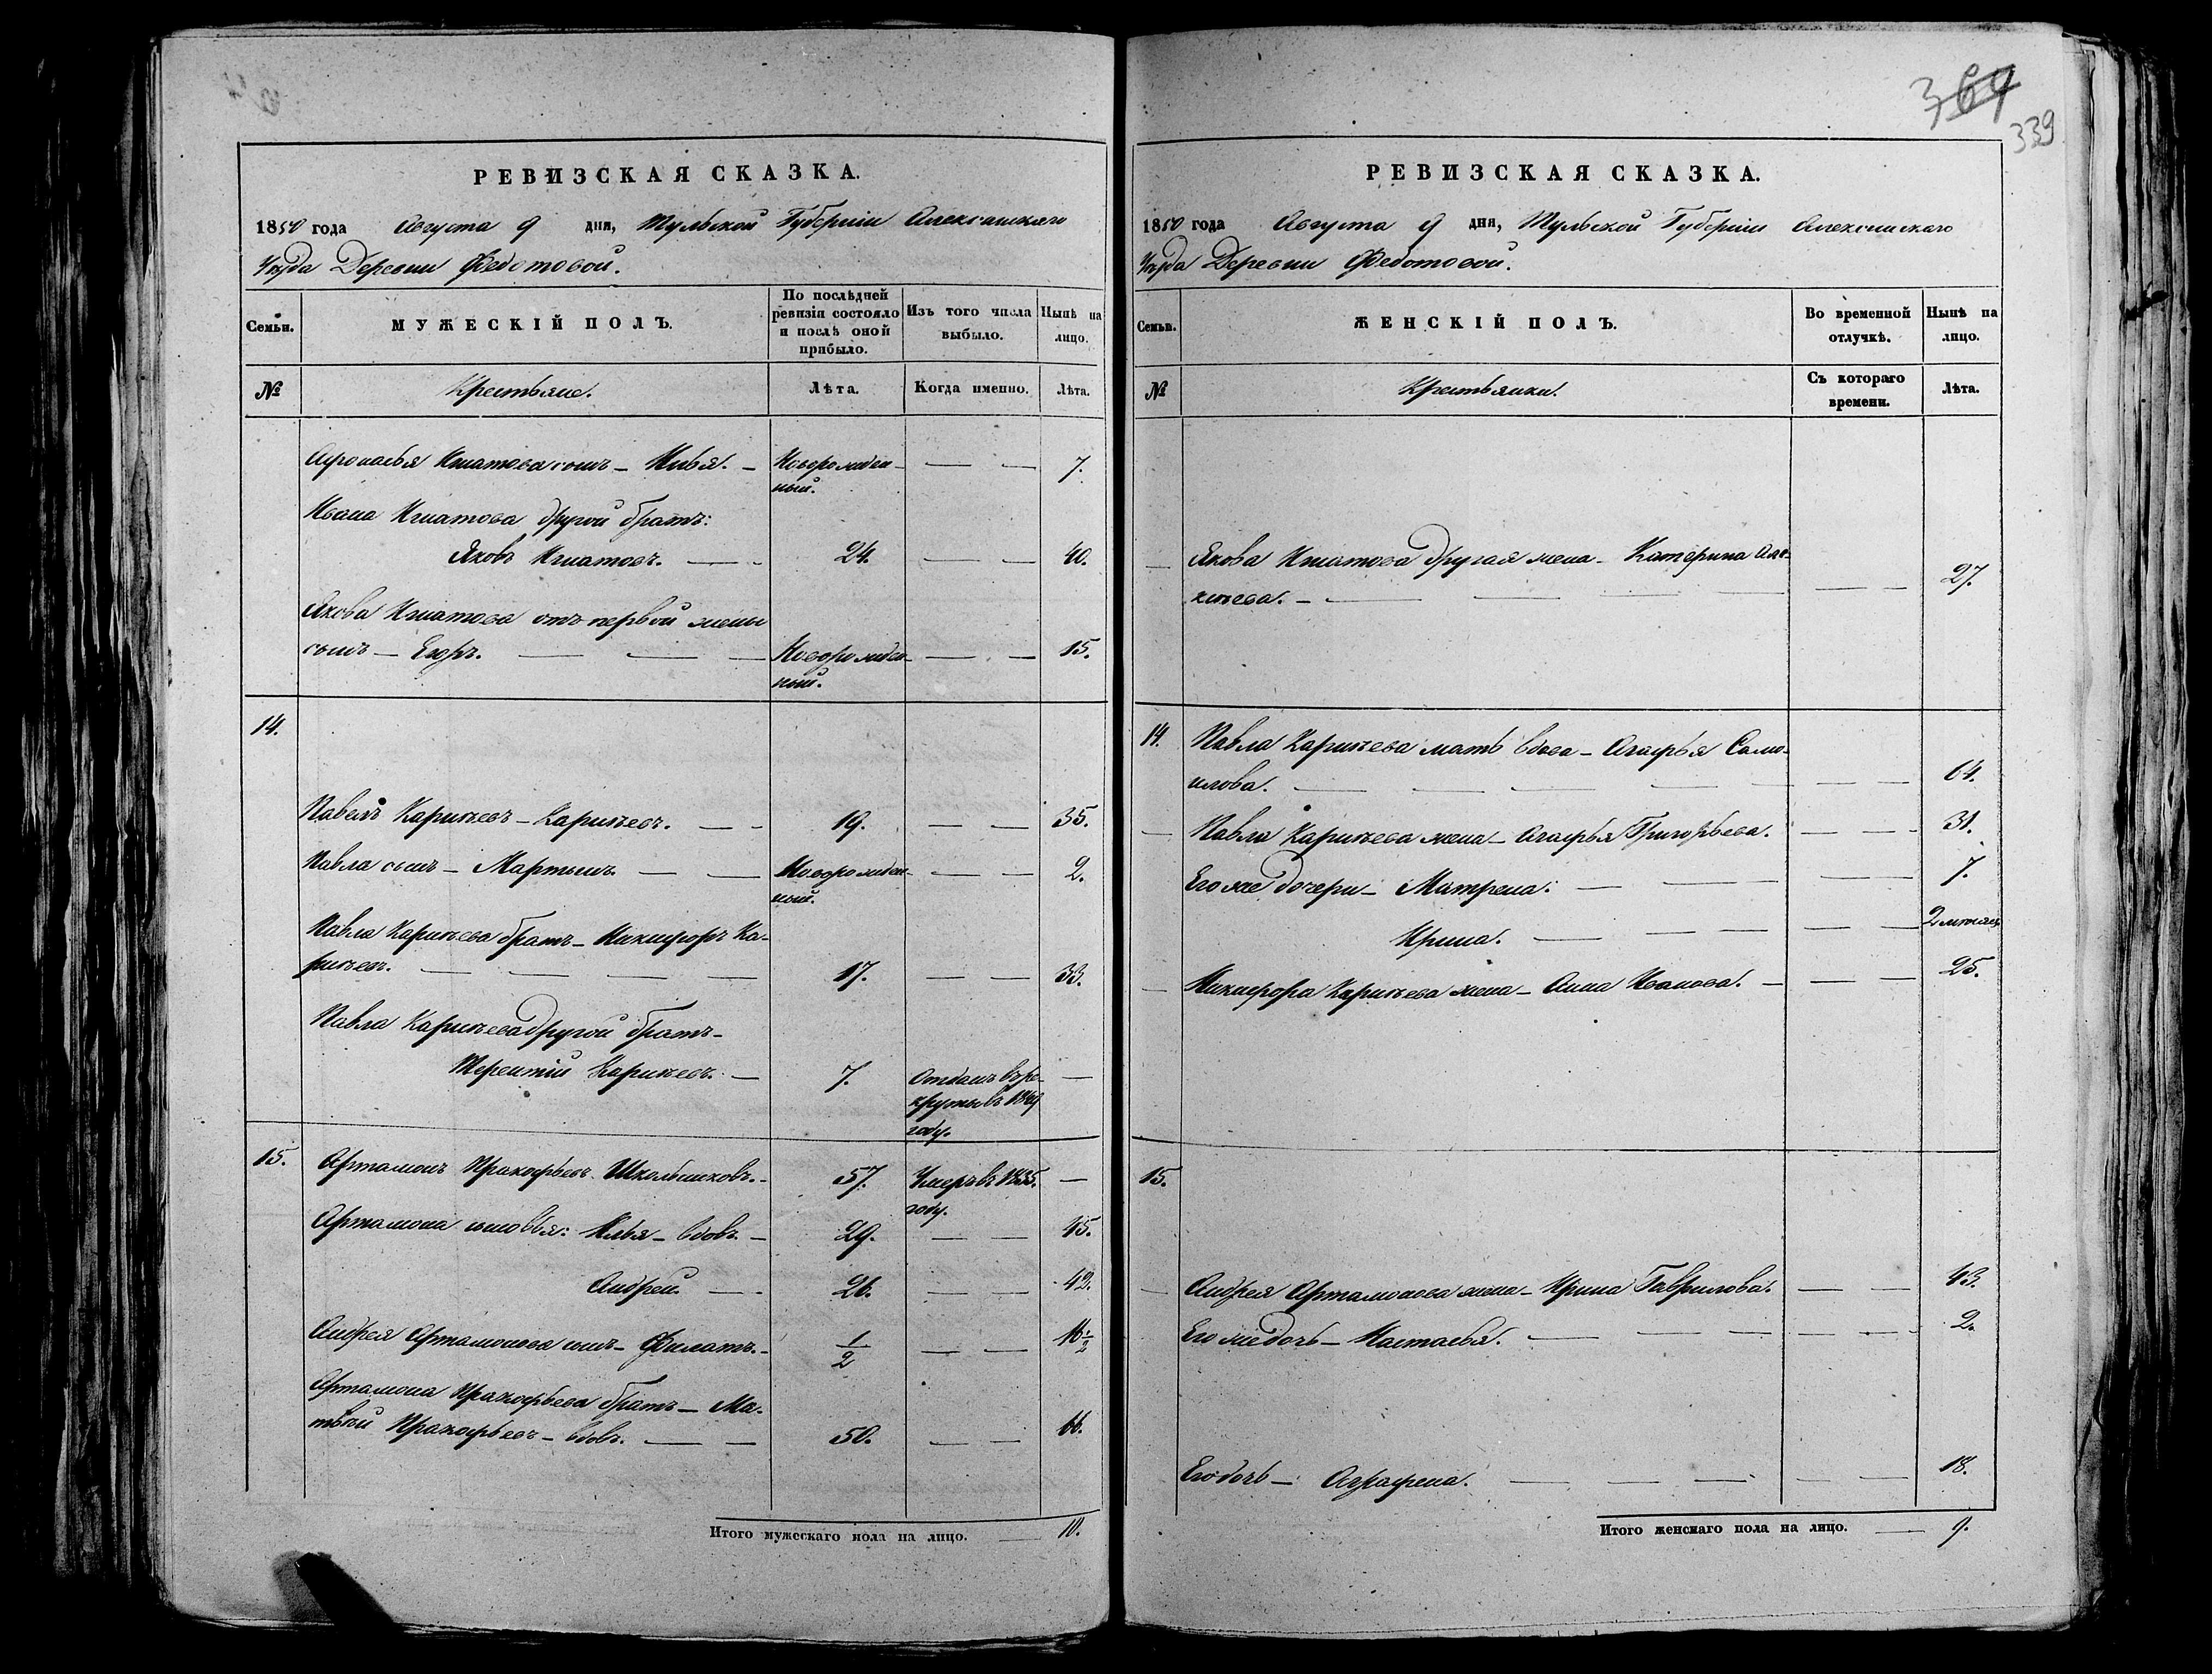 364
339
РЕВИЗСКАЯ СКАЗКА.
1850 года Августа 9 дня, Тульской Губерніи Алексинскаго
Уѣзда Деревни Федотовой.
Семьи.
МУЖЕСКІЙ ПОЛЪ.
По послѣдней
ревизіи состояло
и послѣ оной
прибыло.
Изъ того числа
выбыло.
Нынѣ на
лицо.
№
Крестьяне.
Лѣта.
Когда именно.
Лѣта.
Афонасья Игнатова сынъ – Илья. – Новорожден- 7.
ный.
Ивана Игнатова другой братъ:
Яковъ Игнатовъ. 24. 40.
Якова Игнатова отъ первой жены
сынъ – Егоръ. Новорожден- 15.
ный.
14.
Павелъ Карнѣевъ – Карнѣевъ. 19. 35.
Павла сынъ – Мартынъ. Новорожден- 2.
ный.
Павла Карнѣева братъ – Никифоръ Кар-
нѣевъ. 17. 33.
Павла Карнѣева другой братъ –
Терентій Карнѣевъ. – 7. Отданъ въ ре- —
круты въ 1849
году.
15. Артамонъ Пракофьевъ Школьниковъ. 57. Умеръ въ 1835. —
году.
Артамона сыновья: Илья – вдовъ. – 29. 45.
Андрей. 26. 42.
Андрея Артамонова сынъ – Филатъ. 1/2 16 1/2
Артамона Пракофьева братъ – Ма-
твѣй Пракофьевъ – вдовъ. 50. 66.
Итого мужескаго пола на лицо. 10.
РЕВИЗСКАЯ СКАЗКА.
1850 года Августа 9 дня, Тульской Губерніи Алексинскаго
Уѣзда Деревни Федотовой.
Семьи.
ЖЕНСКІЙ ПОЛЪ.
Во временной
отлучкѣ.
Нынѣ на
лицо.
№
Крестьянки.
Съ котораго
времени.
Лѣта.
Якова Игнатова другая жена – Катерина Але-
ксѣева. – 27.
14. Павла Карнѣева мать вдова – Агафья Само-
илова. 64.
Павла Карнѣева жена – Агафья Григорьева. 31.
Его же дочери – Матрена: 7.
Ирина. 2 мѣсяц.
Никифора Карнѣева жена – Анна Иванова. – 25.
15.
Андрея Артамонова жена – Ирина Гаврилова. 43.
Его же дочь – Настасья. 2.
Его дочь – Аграфена. 18.
Итого женскаго пола на лицо. 9.